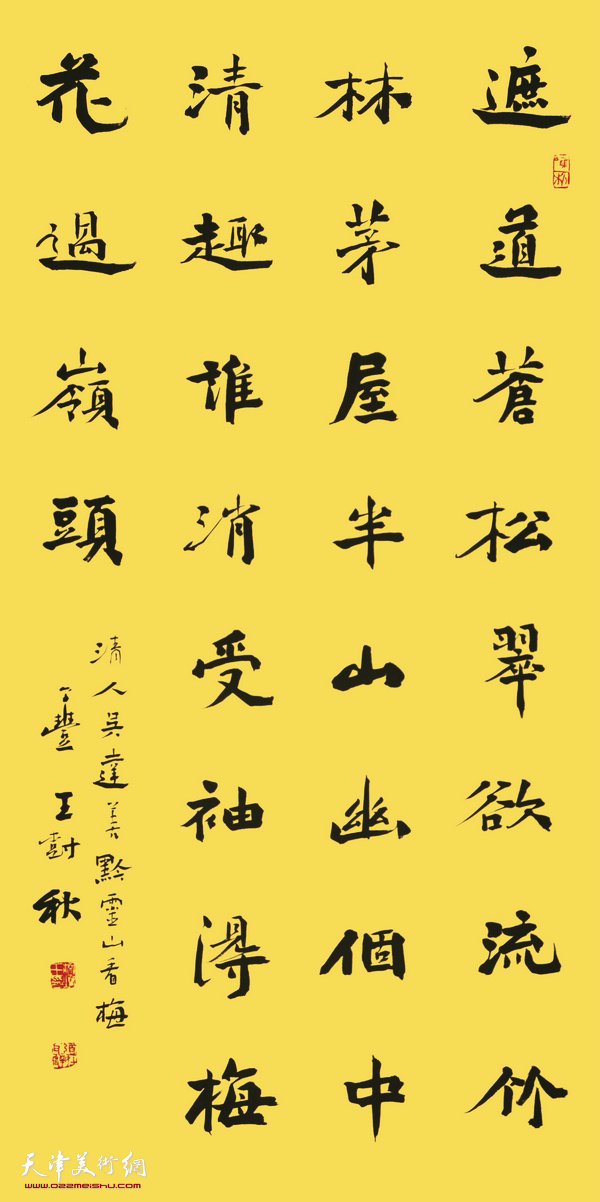 遮道蒼松翠欲流竹
林茅屋半山幽個中
清趣誰消受袖得梅
花過嶺頭
清人吳達善黔靈山看梅
豐王樹秋
天津美術網
www.022meishu.com